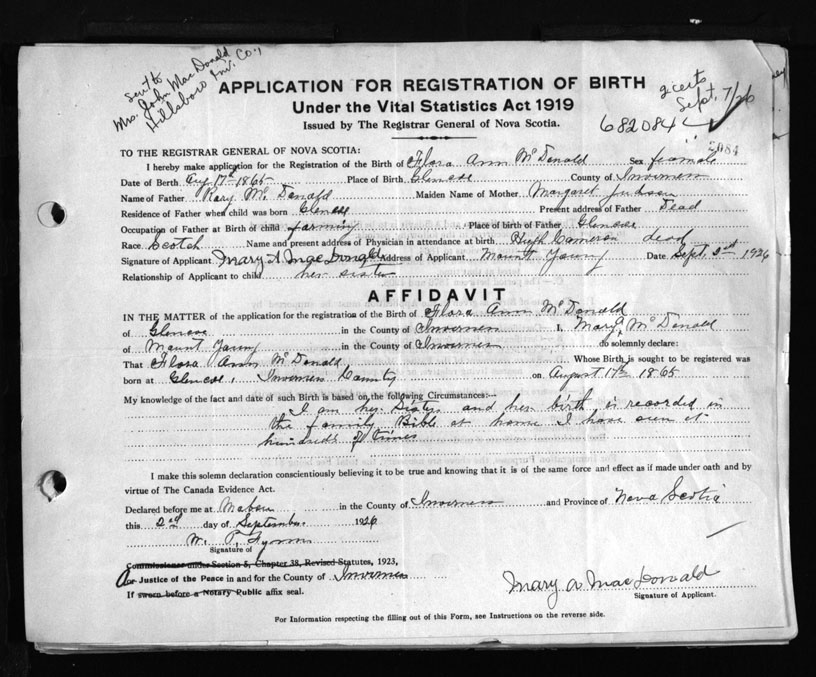 sent to
Mrs. John MacDonald
Hillsboro Inv. Co.,
APPLICATION FOR REGISTRATION OF BIRTH
Under the Vital Statistics Act 1919
Issued by The Registrar General of Nova Scotia.
2 certs
Sept. 7/26
682084
2084
TO THE REGISTRAR GENERAL OF NOVA SCOTIA:
I hereby make application for the Registration of the Birth of Flora Ann McDonald Sex female
Date of Birth Aug 17th 1865 Place of Birth Glencoe County of Inverness
Name of Father Rory McDonald Maiden Name of Mother Margaret
Residence of Father when child was born Glencoe Present address of Father Dead
Occupation of Father at Birth of child farming Place of birth of Father Glencoe
Race Scotch Name and present address of Physician in attendance at birth Hugh Cameron dead
Signature of Applicant Mary A MacDonald Address of Applicant Mount Young Date Sept. 1926
Relationship of Applicant to child her sister
AFFIDAVIT
IN THE MATTER of the application for the registration of the Birth of Flora Ann McDonald
of Glencoe in the County of Inverness I, Mary A McDonald
of Mount Young in the County of Inverness do solemnly declare:
That Flora Ann McDonald Whose Birth is sought to be registered was
born at Glencoe, Inverness County on August 17th 1865
My knowledge of the fact and date of such Birth is based on the following Circumstances:—
I am her Sister and her birth is recorded in
the family Bible at home I have seen it
hundreds of times
I make this solemn declaration conscientiously believing it to be true and knowing that it is of the same force and effect as if made under oath and by
virtue of The Canada Evidence Act.
Declared before me at Mabou in the County of Inverness and Province of Nova Scotia
this 2nd day of September 1926
W. P.
Signature of
Commissioner under Section 5, Chapter 38, Revised Statutes, 1923,
A or Justice of the Peace in and for the County of Inverness
If sworn before a Notary Public affix seal.
Mary A MacDonald
Signature of Applicant.
For Information respecting the filling out of this Form, see Instructions on the reverse side.